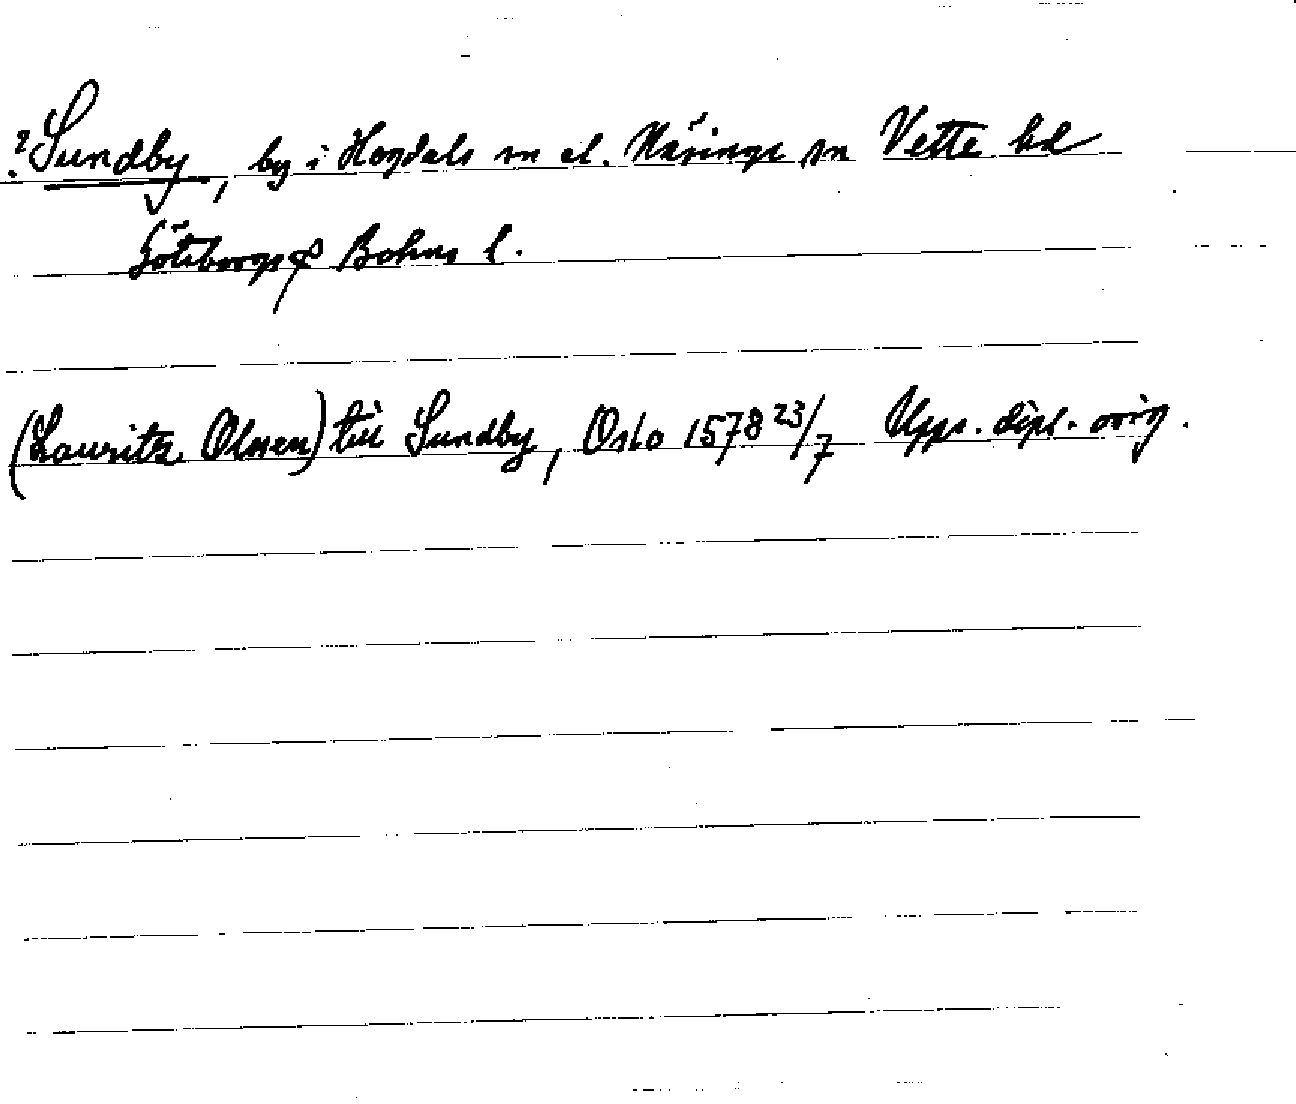 ?Sundby, by i Hogdals sn el. Näsinge sn Vette hd
Göteborgs o Bohus l.
(Lauritz Olssen) till Sundby, Oslo 1578 23/7 Upps. dipl. orig.